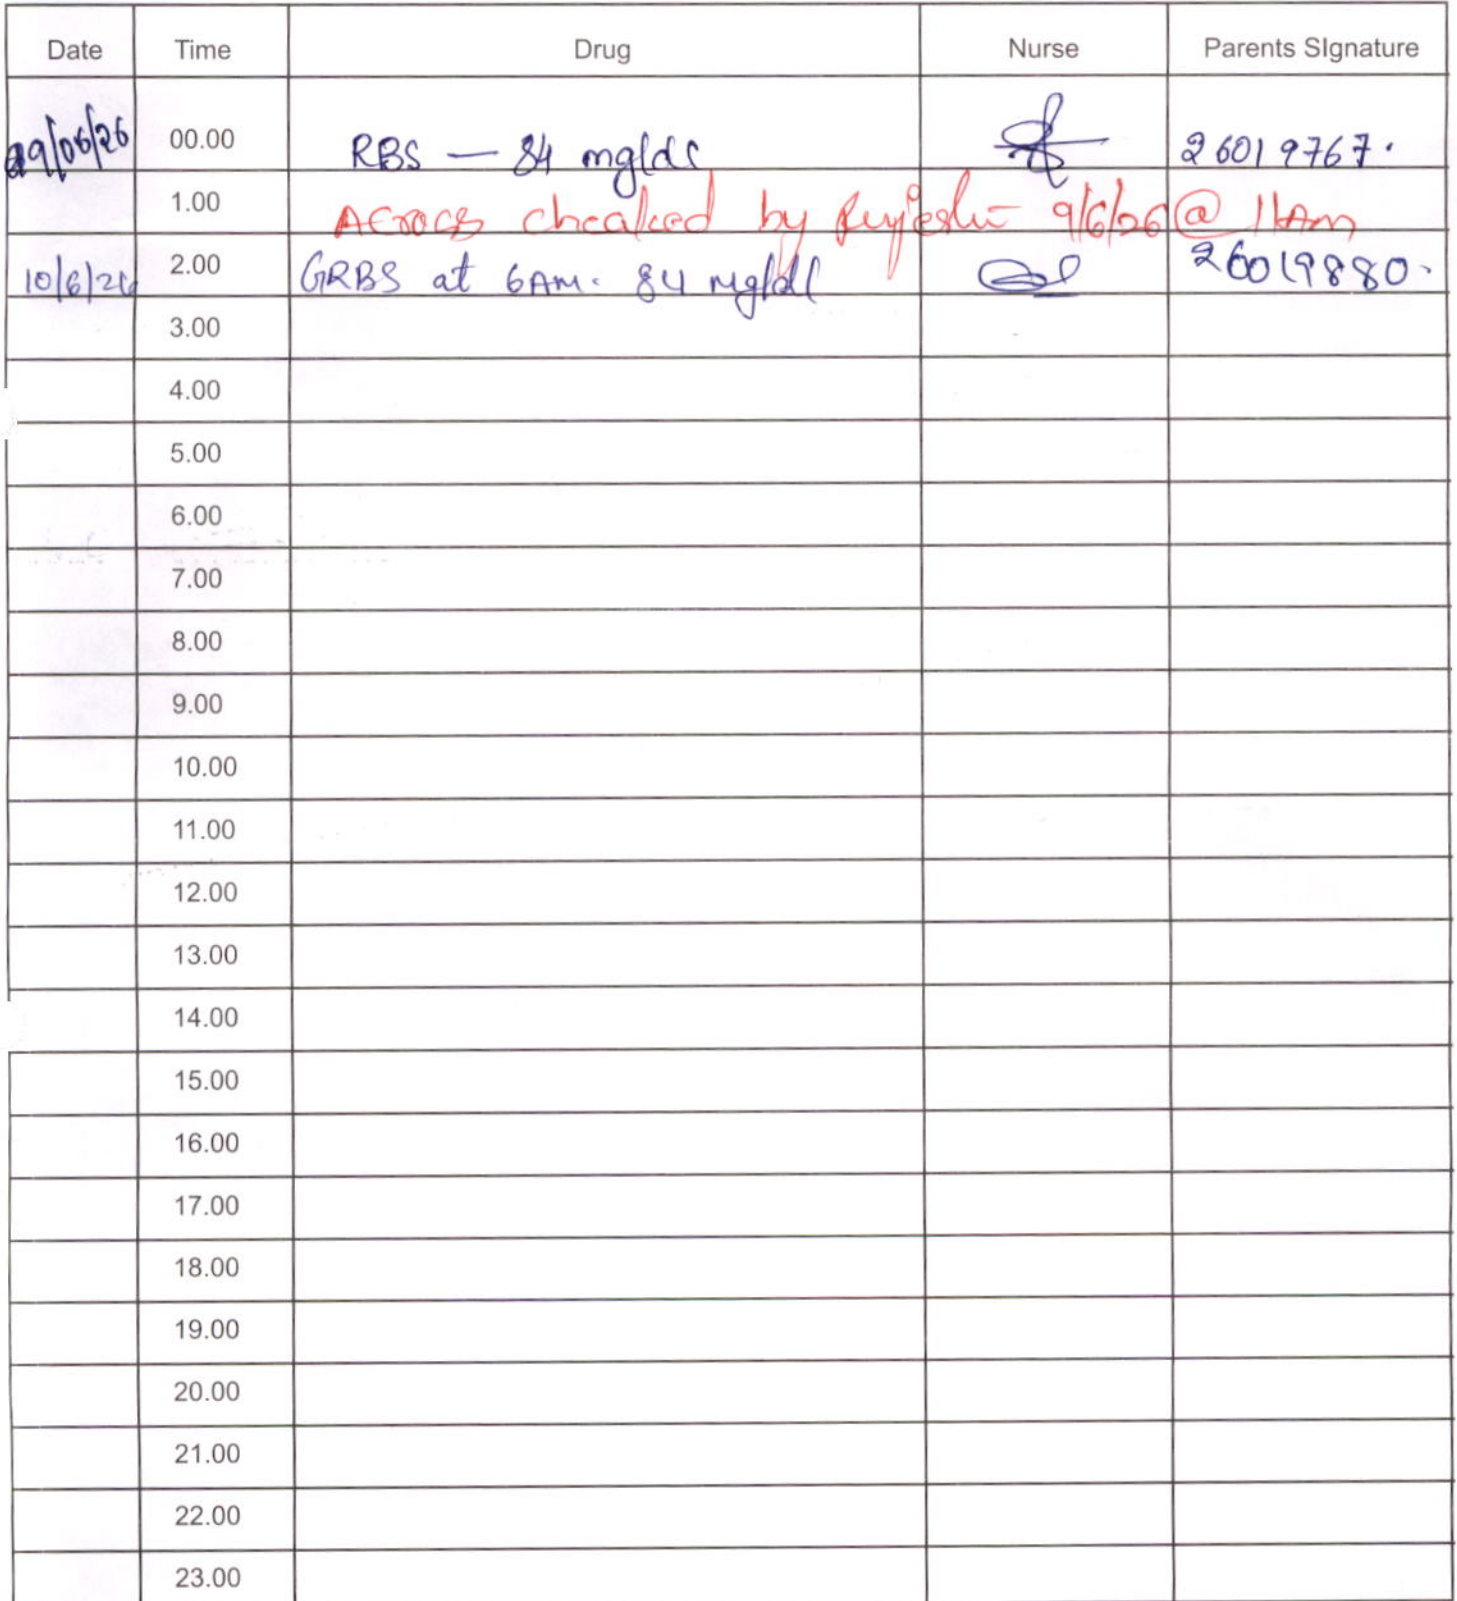 Date Time Drug Nurse Parents SIgnature
09/06/26 00.00 RBS — 84 mg/dl 26019767.
1.00 checked by 9/6/26 @ 11am
10/6/26 2.00 GRBS at 6AM. 84 mg/dl 26019880.
3.00
4.00
5.00
6.00
7.00
8.00
9.00
10.00
11.00
12.00
13.00
14.00
15.00
16.00
17.00
18.00
19.00
20.00
21.00
22.00
23.00